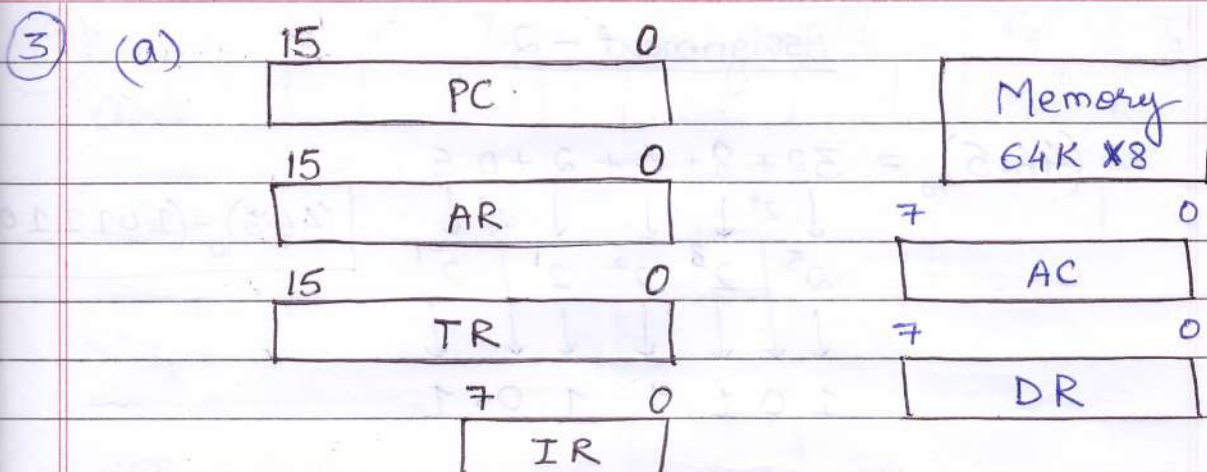 3 (a) 15 0
PC.
15 0
AR
15 0
TR
7 0
IR
Memory
64K x8
7 0
AC
7 0
DR